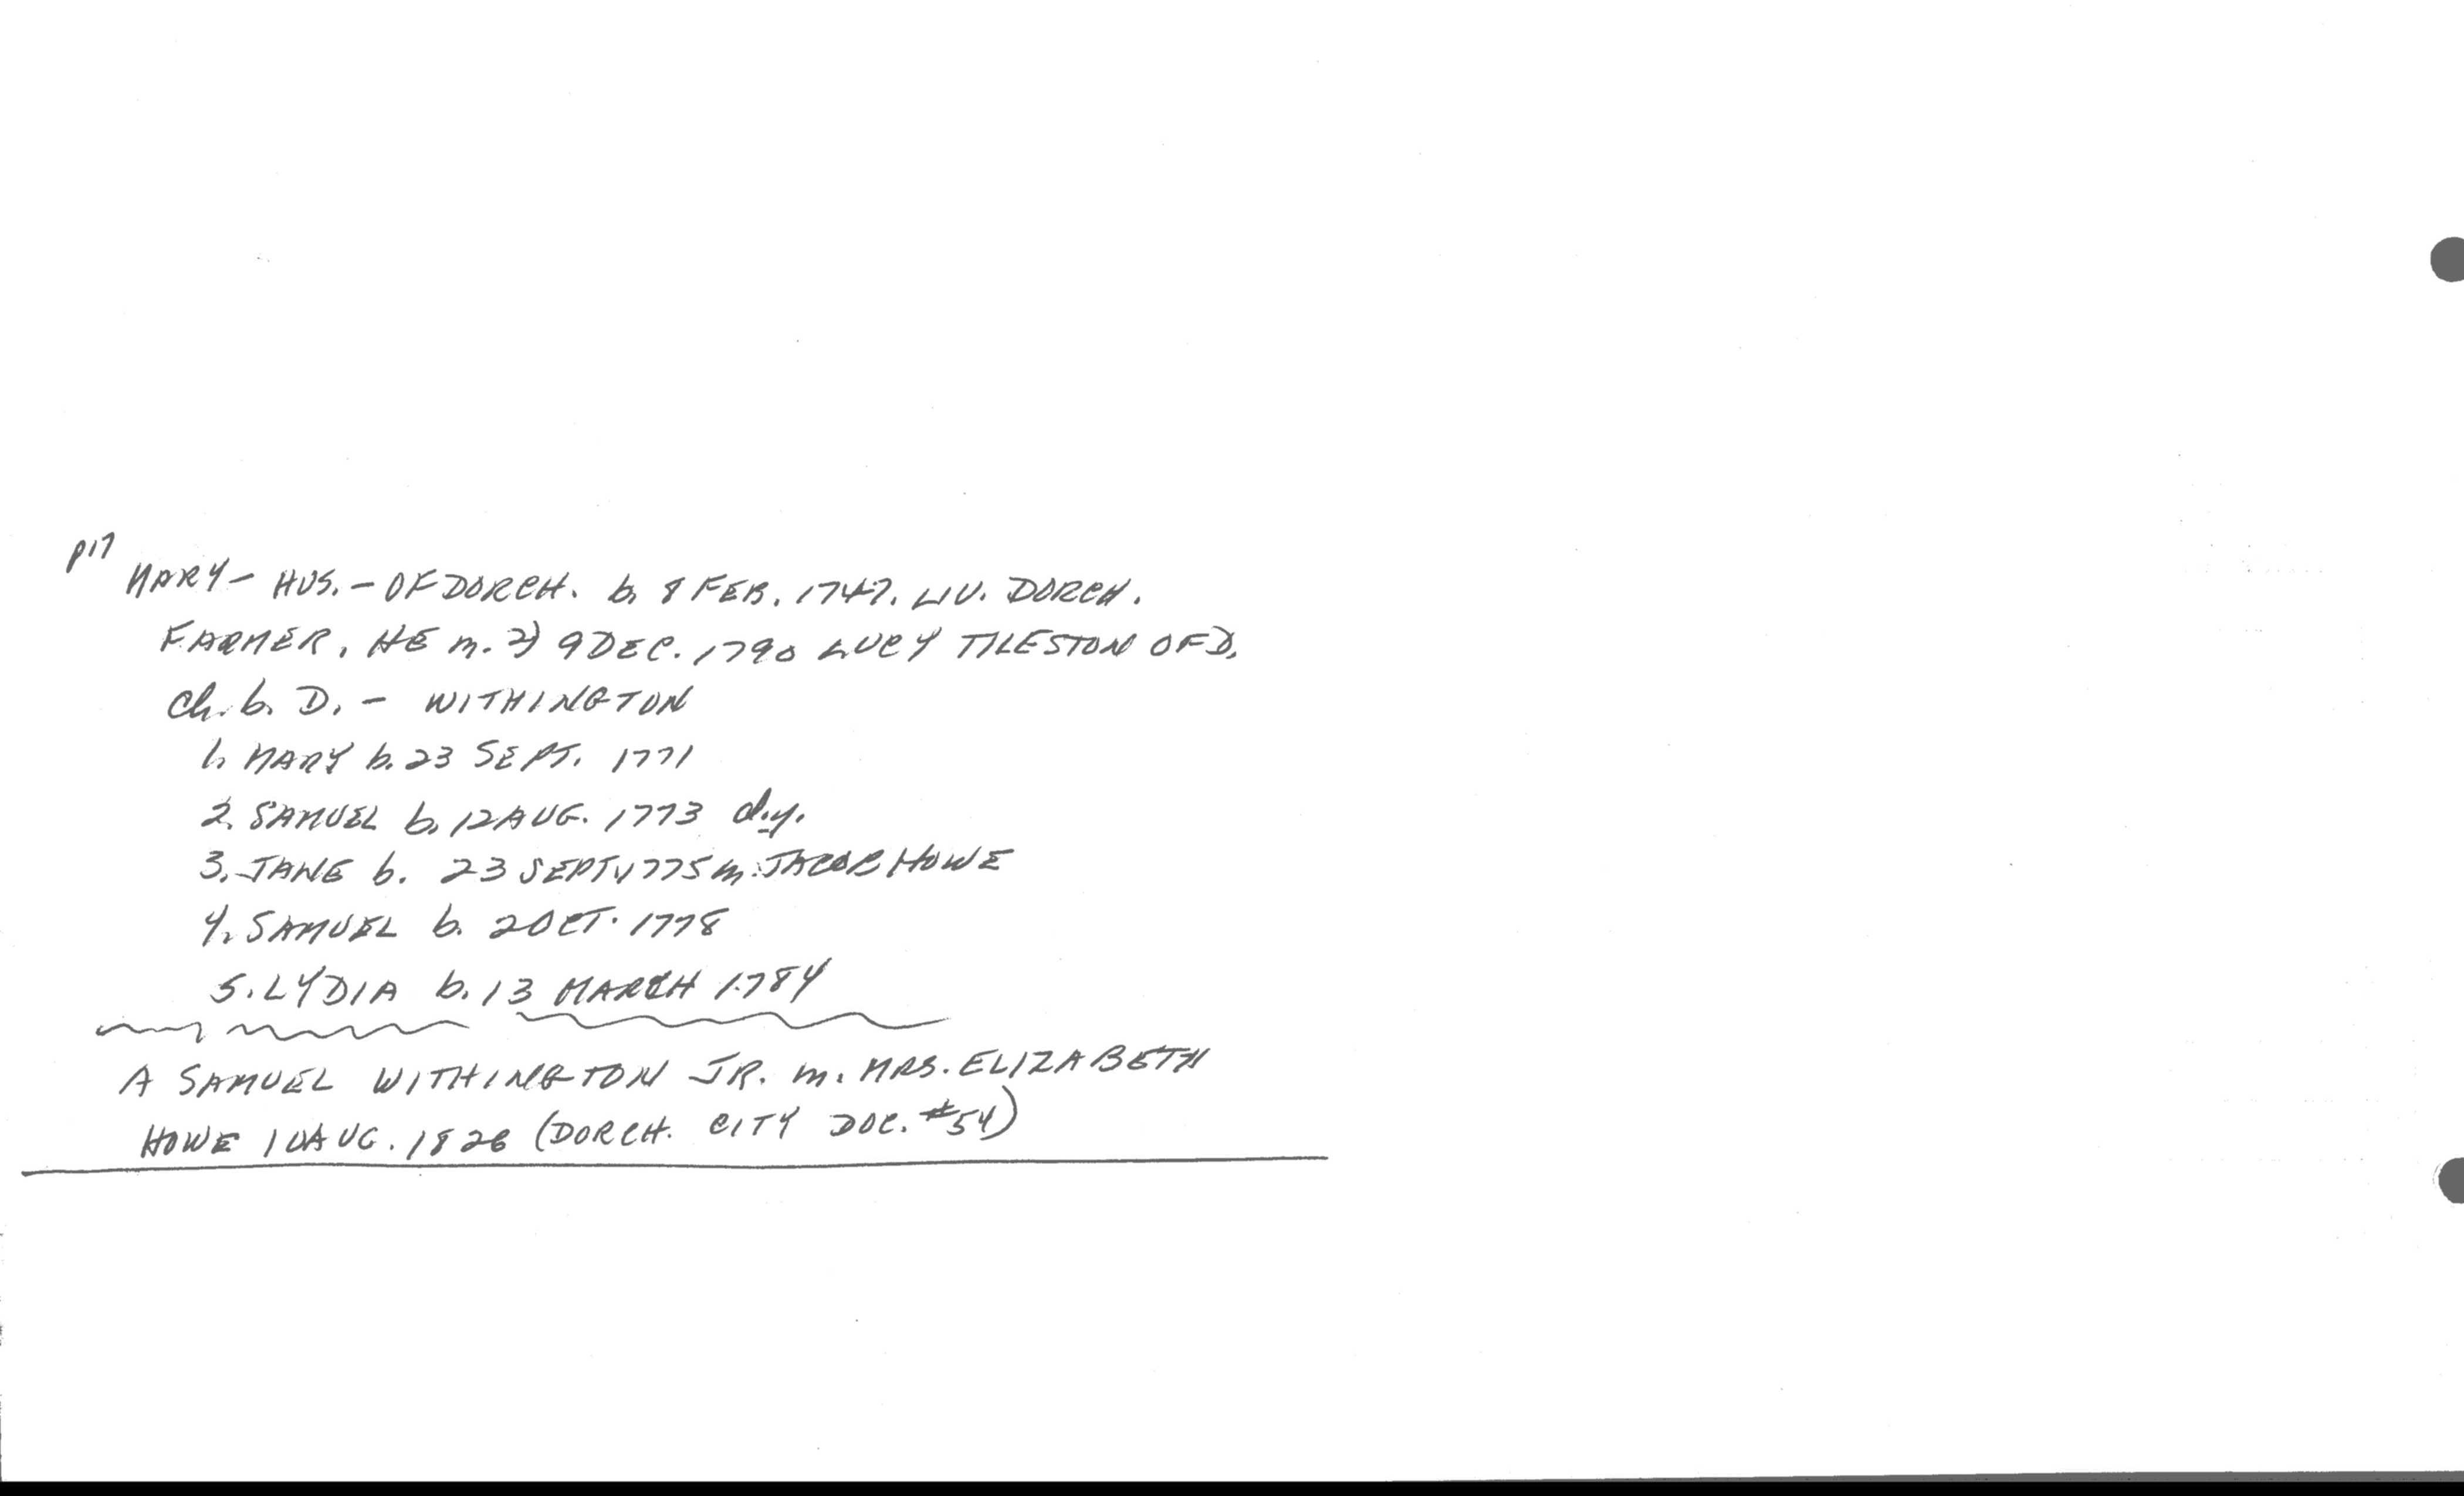 p17
MARY - HUS. - OF DORCH. b. 8 FEB. 1747. LIV. DORCH.
FARMER. HE m. 2) 9 DEC. 1790 LUCY TILESTON OF D.
Ch. b. D. - WITHINGTON
1. MARY b. 23 SEPT. 1771
2. SAMUEL b. 12 AUG. 1773 d.y.
3. JANE b. 23 SEPT. 1775 m. JACOB HOWE
4. SAMUEL b. 2 OCT. 1778
5. LYDIA b. 13 MARCH 1784
A SAMUEL WITHINGTON JR. m. MRS. ELIZABETH
HOWE AUG. (DORCH. CITY DOC. #54)